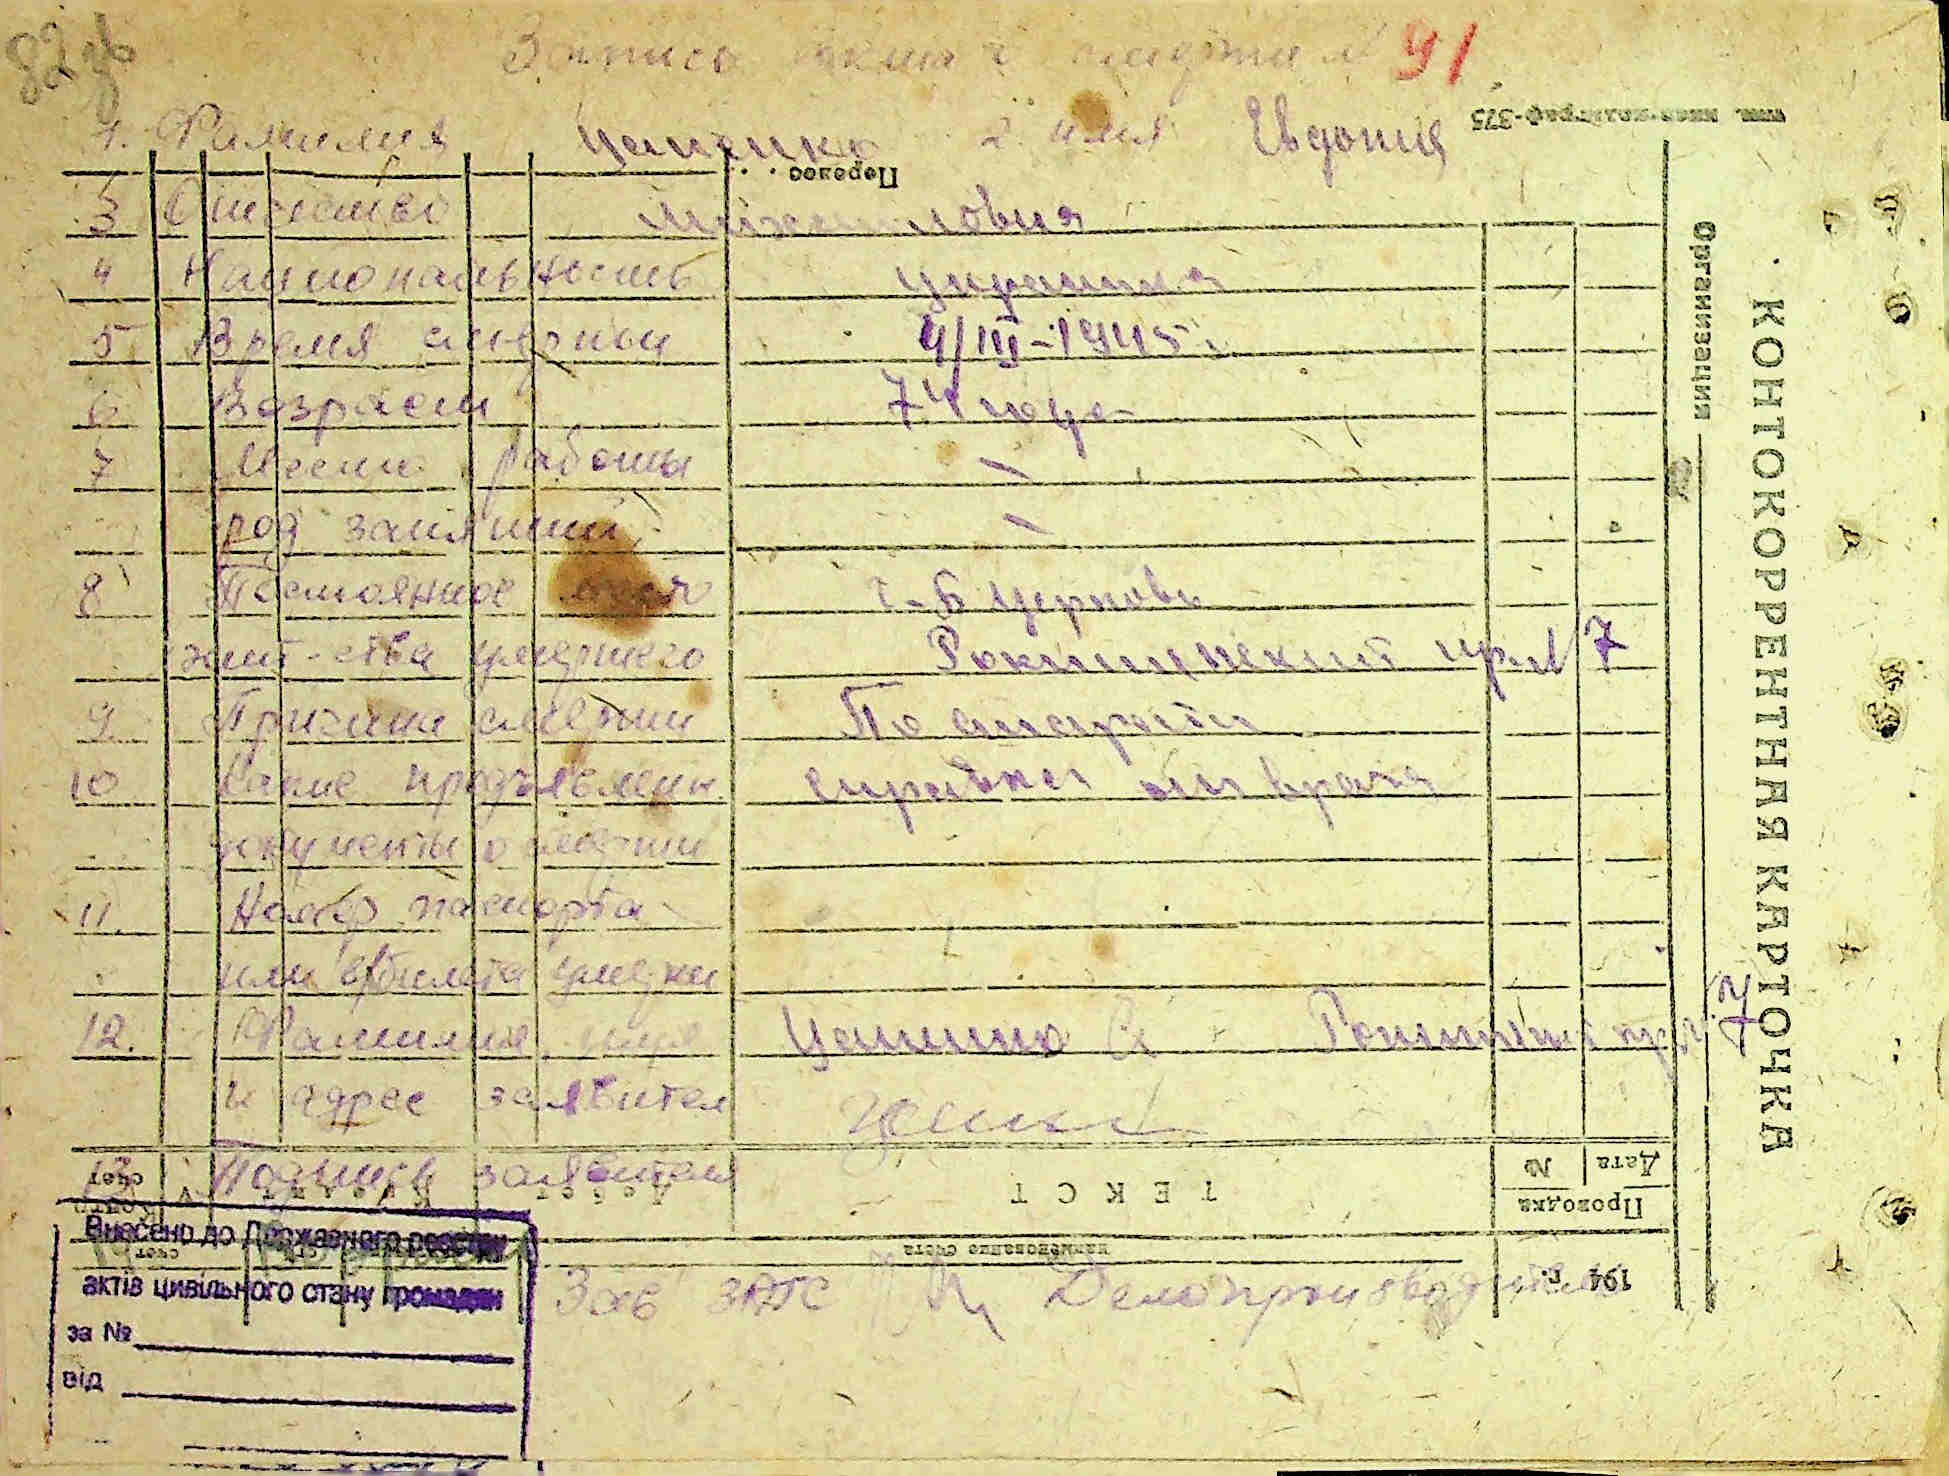 82
Запись акта о смерти № 91
1. Фамилия Цапенко 2. имя Евдокия
тип. киев-полиграф-375
Перенос
3 Отчество Михайловна
4 Национальность Украинка
5 Время смерти 4/III-1945 г.
6 Возраст 74 года
7 Место работы —
род занятий —
8 Постоянное место г. Б Церковь
жит-ства умершего Рокитнянский пр. № 7
9. Причина смерти По старости
10 Какие предъявлены справка от врача
документы о смерти
11. Номер паспорта
или в/билета
12. Фамилия, имя Рокитнянский пр. № 7
и адрес заявител
13. Подпись заявителя
Кредит Дебет ТЕКСТ № Дата
Проводка
наименование счета
194 г.
Зав ЗАГС Делопроизводитель
Организация
КОНТОКОРРЕНТНАЯ КАРТОЧКА
Внесено до Державного реєстру
актів цивільного стану громадян
за №
від